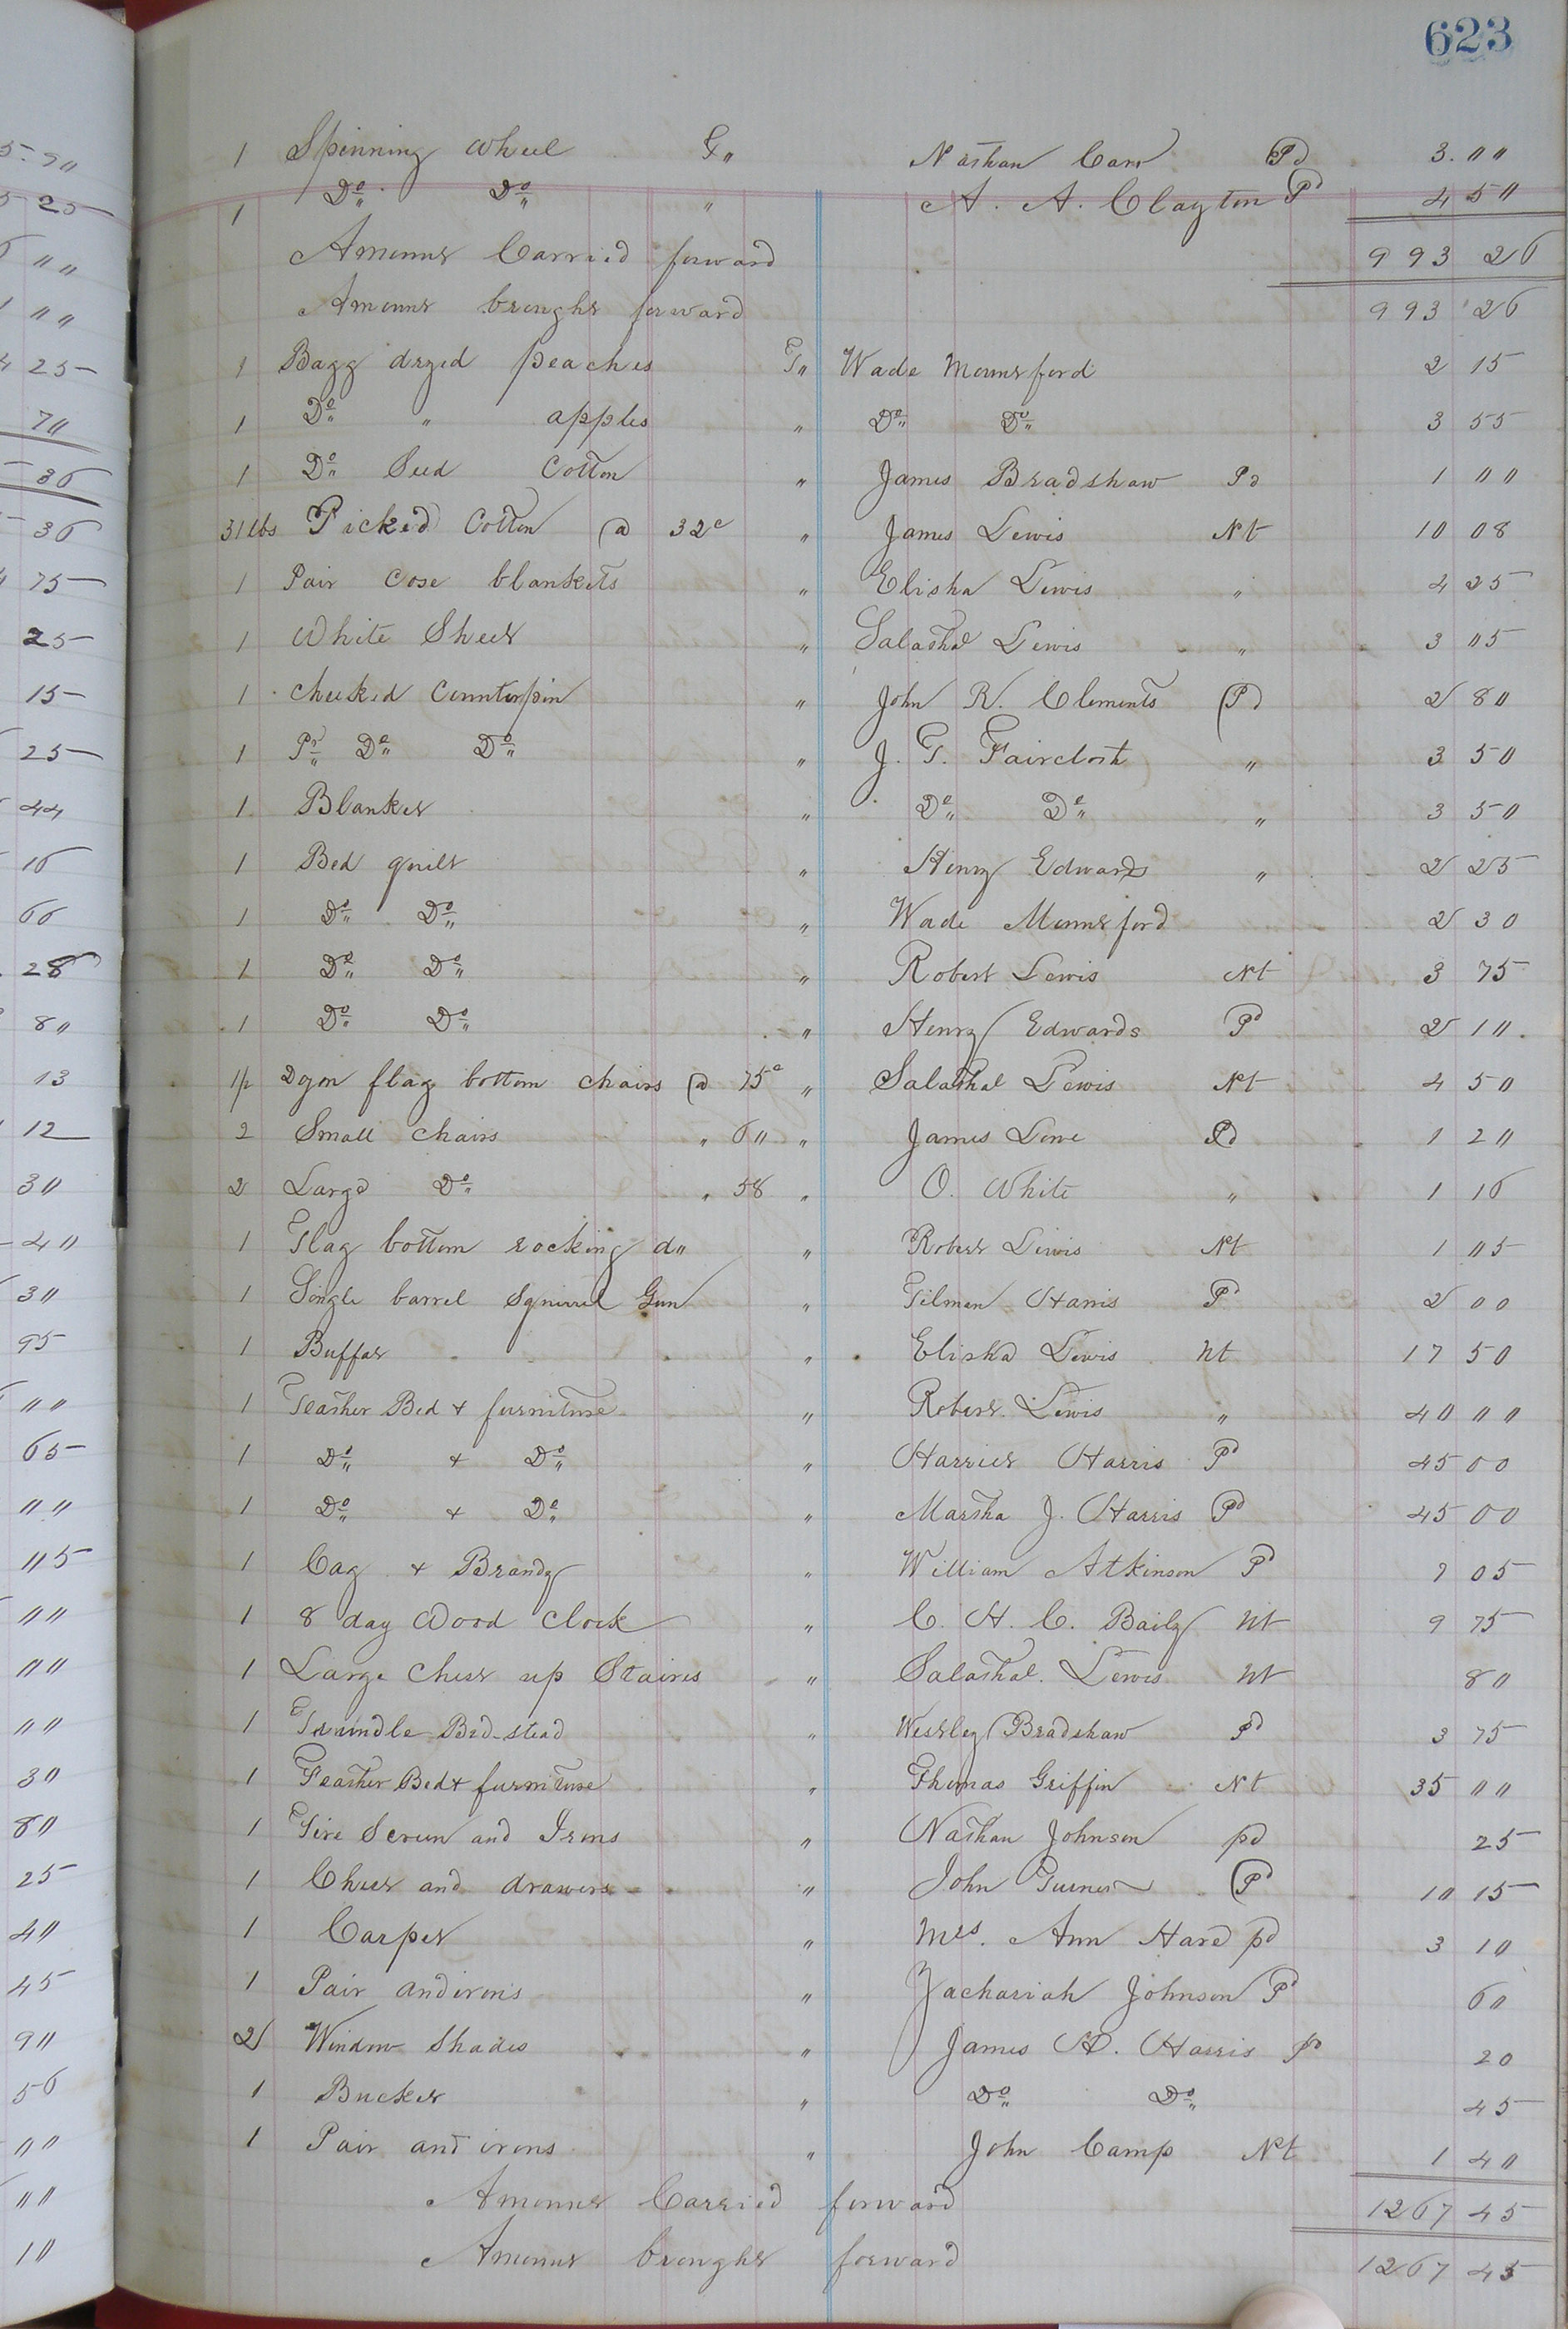 623
1 Spinning Wheel T" Nathan Carr Pd 3.""
1 Do Do " A. A. Clayton Pd 4 5"
Amount Carried forward 993 26
Amount brought forward 993 26
1 Bagg dryed peaches T" Wade Mountsford 2 15
1 Do " apples " Do Do 3 55
1 Do Seed Cotton " James Bradshaw Pd 1 ""
31 lbs Picked Cotton @ 32c " James Lewis Nt 10 08
1 Pair Cose blankets " Elisha Lewis " 4 25
1 White Sheet " Salathal Lewis " 3 "5
1 Checked Counterpin " John R. Clements Pd 2 8"
1 Pr Do Do " J. T. Faircloth " 3 50
1 Blanket " Do Do " 3 50
1 Bed quilt " Henry Edwards " 2 25
1 Do Do " Wade Mountsford 2 30
1 Do Do " Robert Lewis Nt 3 75
1 Do Do " Henry Edwards Pd 2 1".
1/2 Dozn flag bottom chairs @ 75c " Salathal Lewis Nt 4 50
2 Small chairs " 6" " James Lowe Pd 1 2"
2 Large Do " 58 " O. White " 1 16
1 Flag bottom rocking d" " Robert Lewis Nt 1 "5
1 Single barrel Squirrel Gun " Tilman Harris Pd 2 00
1 Buffat " Elisha Lewis Nt 17 50
1 Feather Bed & furniture " Robert Lewis " 40 ""
1 Do & Do " Harriet Harris Pd 45 00
1 Do & Do " Martha J. Harris Pd 45 00
1 Cag & Brandy " William Atkinson Pd 9 05
1 8 day Wood Clock " C. H. C. Baily Nt 9 75
1 Large Chest up Staires " Salathal Lewis Nt 8"
1 Trundle Bed-stead " Westley Bradshaw Pd 3 75
1 Feather Bed & furniture " Thomas Griffin Nt 35 ""
1 Fire Screen and Irons " Nathan Johnson pd 25
1 Chest and drawers " John Turner Pd 10 15
1 Carpet " Mrs. Ann Hare pd 3 10
1 Pair andirons " Zachariah Johnson Pd 6"
2 Window Shades " James H. Harris Pd 20
1 Bucket " Do Do 45
1 Pair and irons " John Camp Nt 1 4"
Amount Carried forward 1267 45
Amount brought forward 1267 45